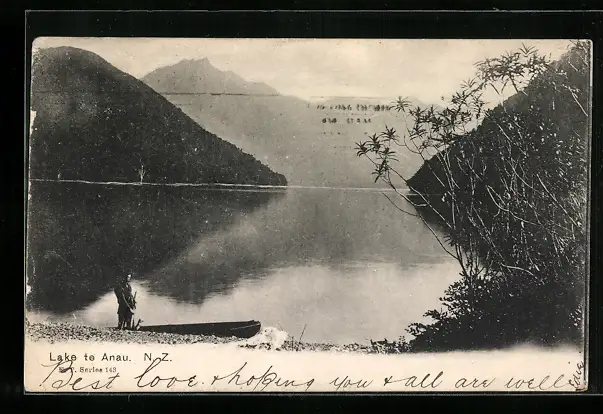 Lake te Anau. N.Z.
F.T. Series 143
Best love. & hoping you & all are well